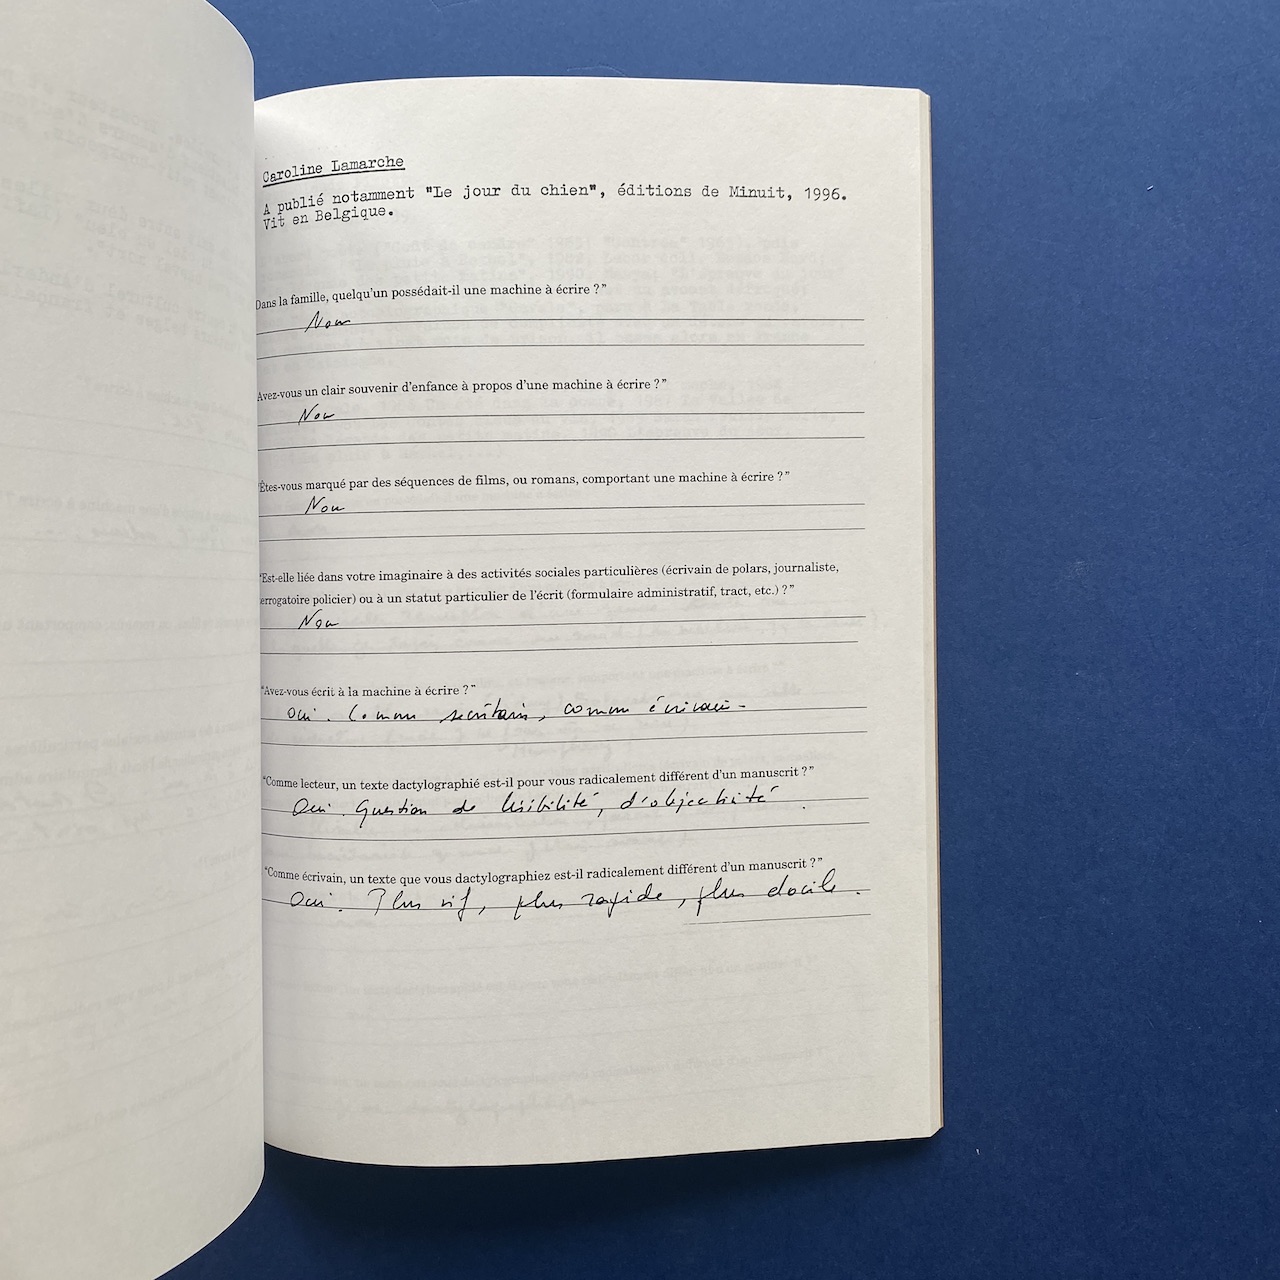 Caroline Lamarche
A publié notamment "Le jour du chien", éditions de Minuit, 1996.
Vit en Belgique.
Dans la famille, quelqu'un possédait-il une machine à écrire ?"
Non
Avez-vous un clair souvenir d'enfance à propos d'une machine à écrire ?"
Non
"Êtes-vous marqué par des séquences de films, ou romans, comportant une machine à écrire ?"
Non
"Est-elle liée dans votre imaginaire à des activités sociales particulières (écrivain de polars, journaliste,
errogatoire policier) ou à un statut particulier de l'écrit (formulaire administratif, tract, etc.) ?"
Non
"Avez-vous écrit à la machine à écrire ?"
Oui. Comme secrétaire, comme écrivain.
"Comme lecteur, un texte dactylographié est-il pour vous radicalement différent d'un manuscrit ?"
Oui. Question de lisibilité, d'objectivité.
"Comme écrivain, un texte que vous dactylographiez est-il radicalement différent d'un manuscrit ?"
Oui. Plus vif, plus rapide, plus docile.